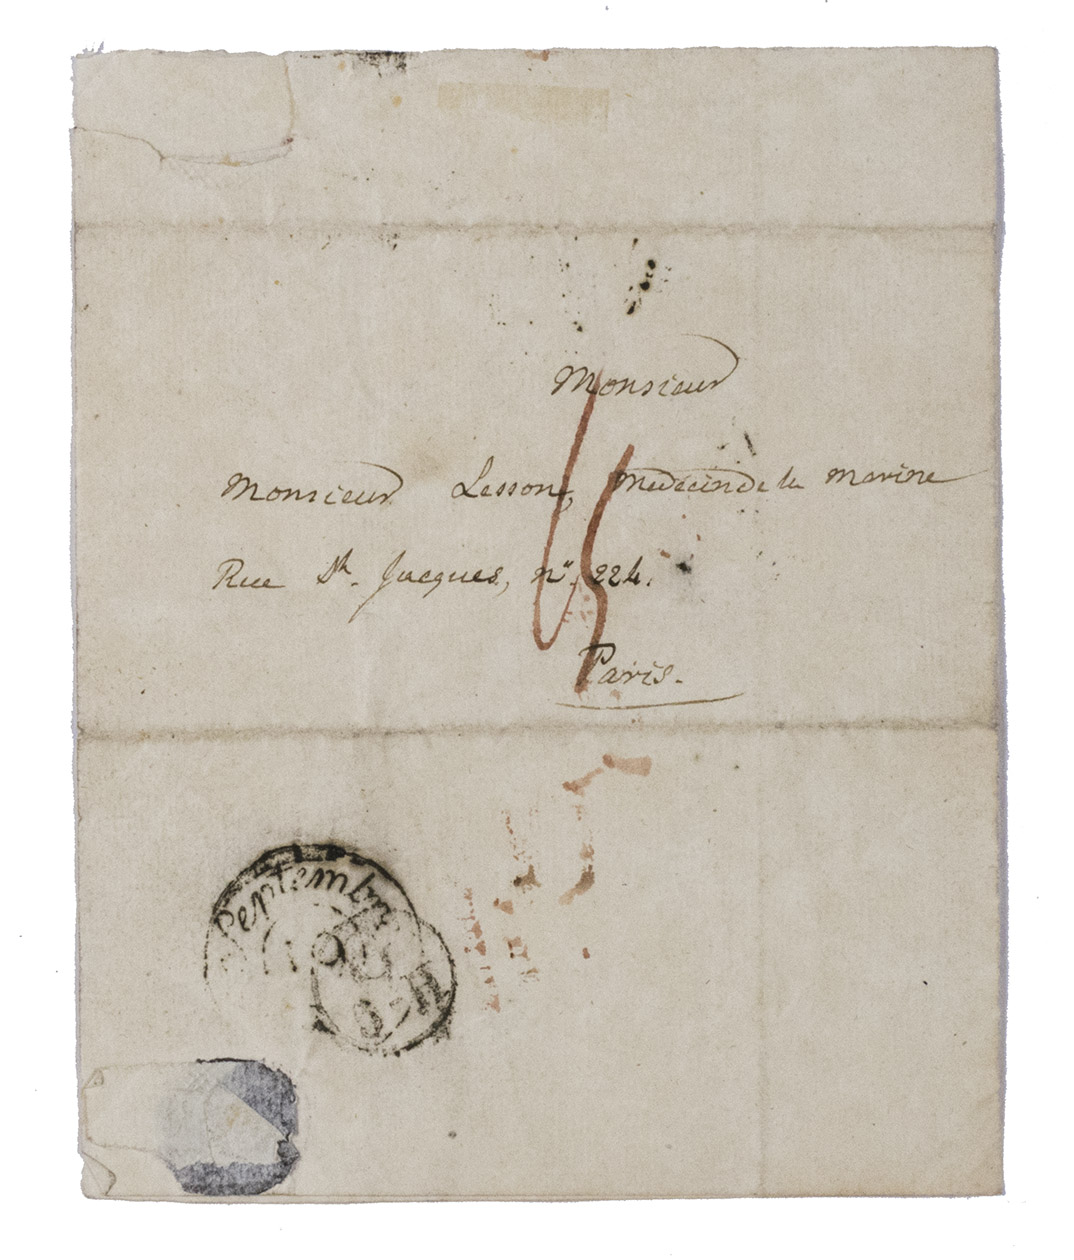 Monsieur
Monsieur Lesson, Medecin de la Marine
Rue St. Jacques, n° 224.
Paris.
Septembre